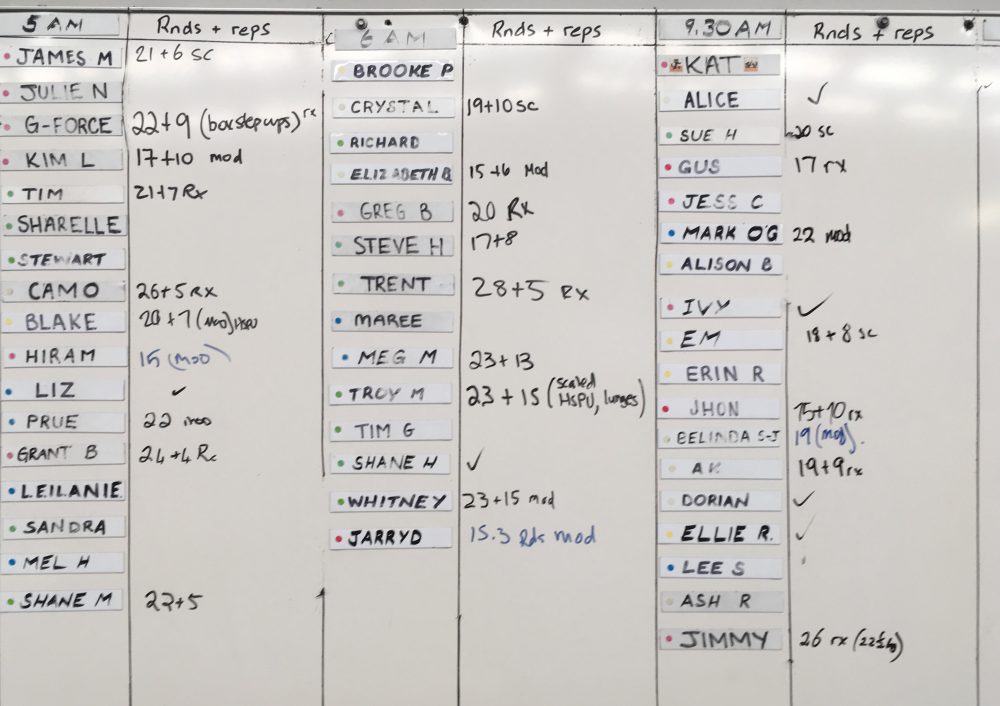 5 AM Rnds + reps
JAMES M 21+6 SC
JULIE N
G-FORCE 22+9 (box step ups) rx
KIM L 17+10 mod
TIM 21+7 Rx
SHARELLE
STEWART
CAMO 26+5 RX
BLAKE 20+7 (Mod) HSPU
HIRAM 15 (MOD)
LIZ ✓
PRUE 22 mod
GRANT B 24+4 Rx
LEILANIE
SANDRA
MEL H
SHANE M 22+5
6 AM Rnds + reps
BROOKE P
CRYSTAL 19+10 SC
RICHARD
ELIZABETH B 15+6 Mod
GREG B 20 RX
STEVE H 17+8
TRENT 28+5 RX
MAREE
MEG M 23+13
TROY M 23+15 (scaled HSPU, lunges)
TIM G
SHANE H ✓
WHITNEY 23+15 mod
JARRYD 15.3 Rds mod
9.30 AM Rnds + reps
KAT
ALICE ✓
SUE H 20 SC
GUS 17 rx
JESS C
MARK O'G 22 mod
ALISON B
IVY ✓
EM 18+8 sc
ERIN R
JHON 15+10 rx
BELINDA S-J 19 (mod).
AK 19+9 rx
DORIAN ✓
ELLIE R. ✓
LEE S
ASH R
JIMMY 26 rx (22½kg)